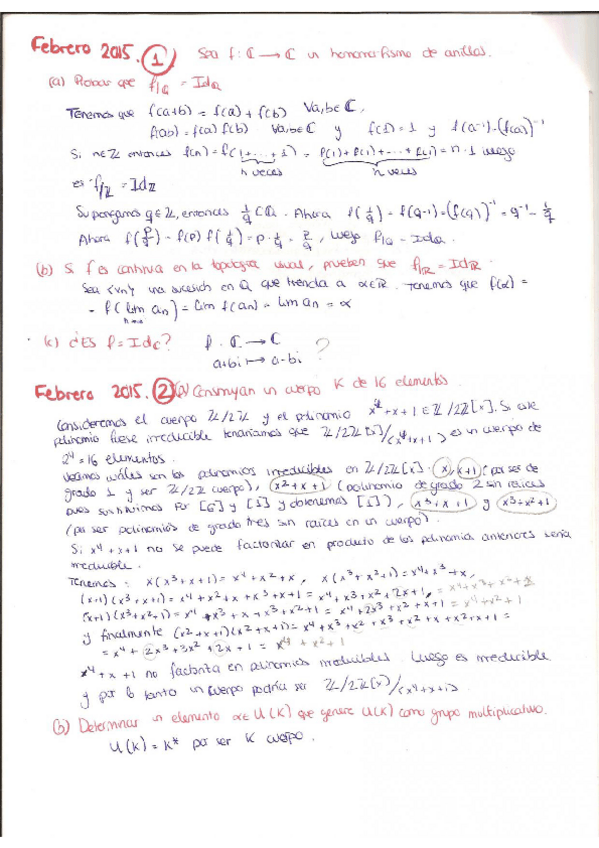 Febrero 2015. 1 Sea f: ℂ → ℂ un homomorfismo de anillos.
(a) Probar que f|ℚ = Idℚ
Tenemos que f(a+b) = f(a) + f(b) ∀a,b∈ℂ,
f(ab) = f(a) f(b) ∀a,b∈ℂ y f(1) = 1 y f(a⁻¹) = (f(a))⁻¹
Si n∈ℤ entonces f(n) = f(1+...+1) = f(1)+f(1)+...+f(1) = n·1 luego
n veces n veces
es f|ℤ = Idℤ
Supongamos q∈ℤ, entonces 1/q ∈ ℚ. Ahora f(1/q) = f(q⁻¹) = (f(q))⁻¹ = q⁻¹ = 1/q
Ahora f(p/q) = f(p) f(1/q) = p · 1/q = p/q, luego f|ℚ = Idℚ.
(b) Si f es continua en la topología usual, prueben que f|ℝ = Idℝ.
Sea una sucesión en ℚ que tienda a α∈ℝ. Tenemos que f(α) =
= f(lim an) = lim f(an) = lim an = α
(c) ¿Es f = Idℂ? f: ℂ → ℂ
a+bi ↦ a-bi ?
Febrero 2015. 2 (a) Construyan un cuerpo K de 16 elementos.
Consideremos el cuerpo ℤ/2ℤ y el polinomio x⁴+x+1 ∈ ℤ/2ℤ[x]. Si este
polinomio fuese irreducible tendríamos que ℤ/2ℤ[x]/(x⁴+x+1) es un cuerpo de
2⁴ = 16 elementos.
Veamos cuáles son los polinomios irreducibles en ℤ/2ℤ[x]: x, x+1 (por ser de
grado 1 y ser ℤ/2ℤ cuerpo), x²+x+1 (polinomio de grado 2 sin raíces
pues sustituimos por [0] y [1] y obtenemos [1]), x³+x+1 y x³+x²+1
(por ser polinomios de grado tres sin raíces en un cuerpo).
Si x⁴+x+1 no se puede factorizar en producto de los polinomios anteriores sería
irreducible.
Tenemos: x(x³+x+1) = x⁴+x²+x, x(x³+x²+1) = x⁴+x³+x,
(x+1)(x³+x+1) = x⁴+x²+x+x³+x+1 = x⁴+x³+x²+2x+1 =
(x+1)(x³+x²+1) = x⁴+x³+x+x³+x²+1 = x⁴+2x³+x²+x+1 =
y finalmente (x²+x+1)(x²+x+1) = x⁴+x³+x²+x³+x²+x+x²+x+1 =
= x⁴+2x³+3x²+2x+1 = x⁴+x²+1
x⁴+x+1 no factoriza en polinomios irreducibles. Luego es irreducible
y por lo tanto un cuerpo podría ser ℤ/2ℤ[x]/(x⁴+x+1)
(b) Determinar un elemento α∈U(K) que genere U(K) como grupo multiplicativo.
U(K) = K* por ser K cuerpo.